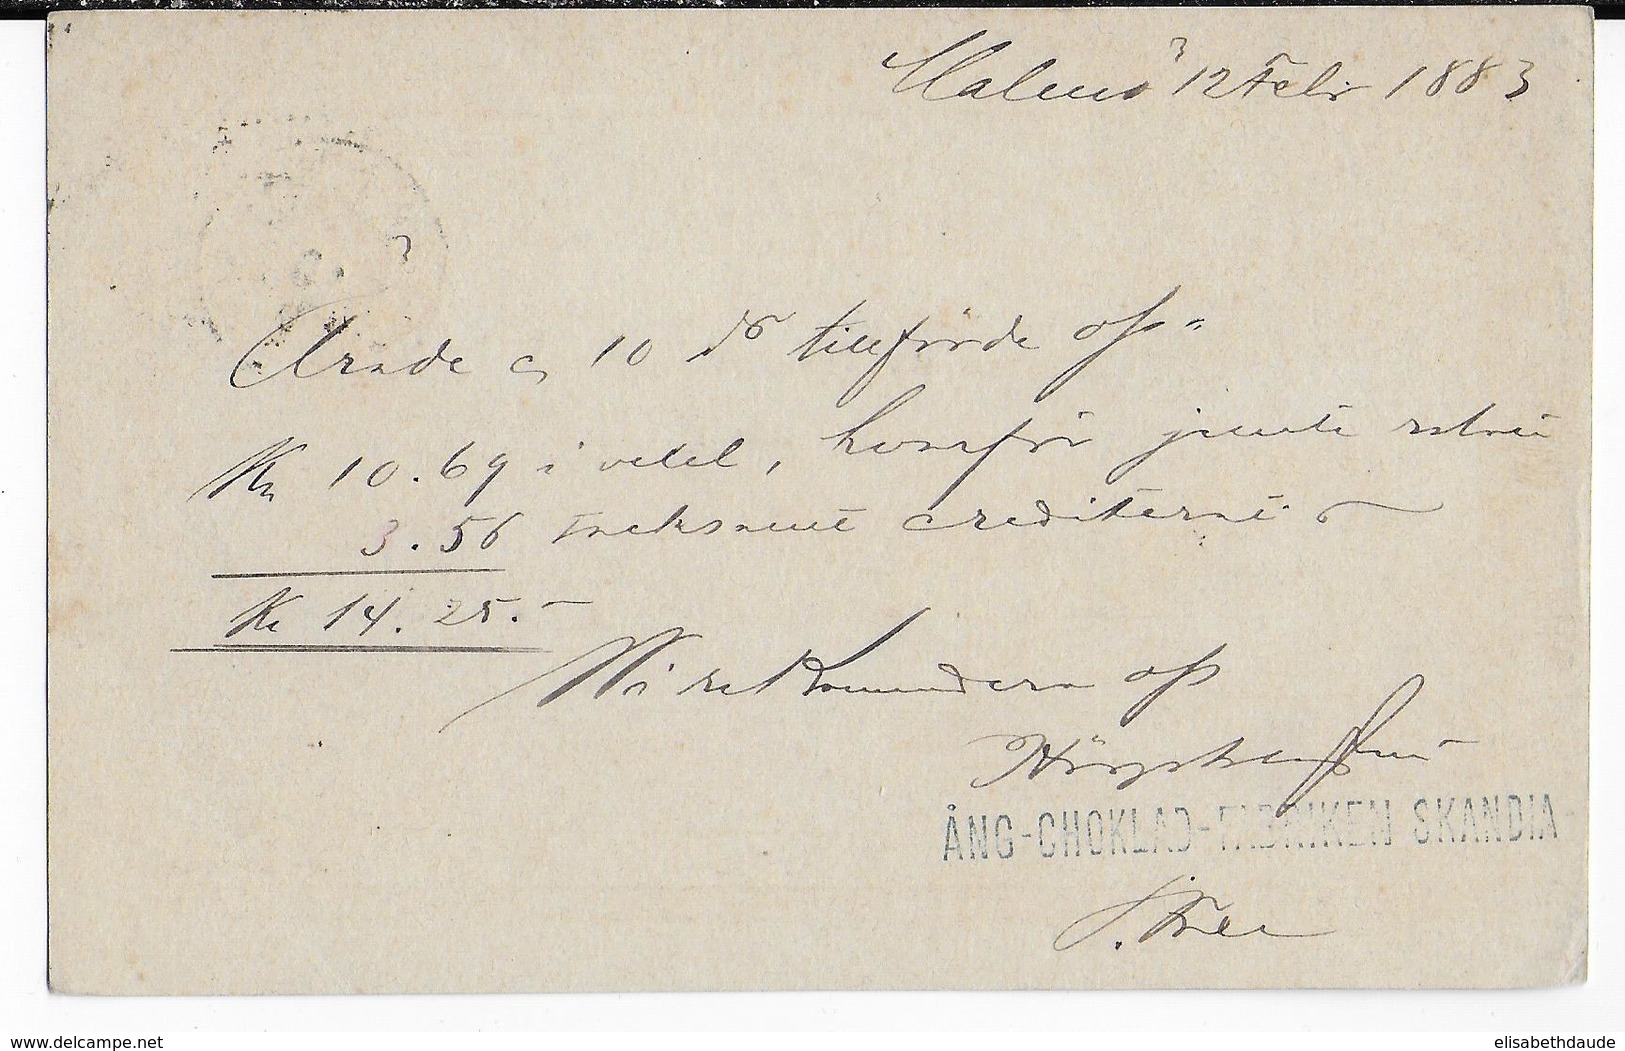 Malmö 12 Febr 1883
Ärade af 10 ds tillförde oss
Kr 10.69 i vexel, hvarför jemte
3.56 crediterat
Kr 14.25.-
Vi rekommendera oss
Högaktningsfullt
ÅNG-CHOKLAD-FABRIKEN SKANDIA
www.delcampe.net
elisabethdaude